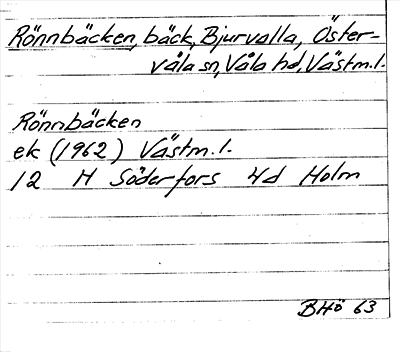 Rönnbäcken, bäck, Bjurvalla, Öster-
våla sn, Våla hd, Västm.l.
Rönnbäcken
ek (1962) Västm.l.
12 H Söderfors 4d Holm
BHö 63